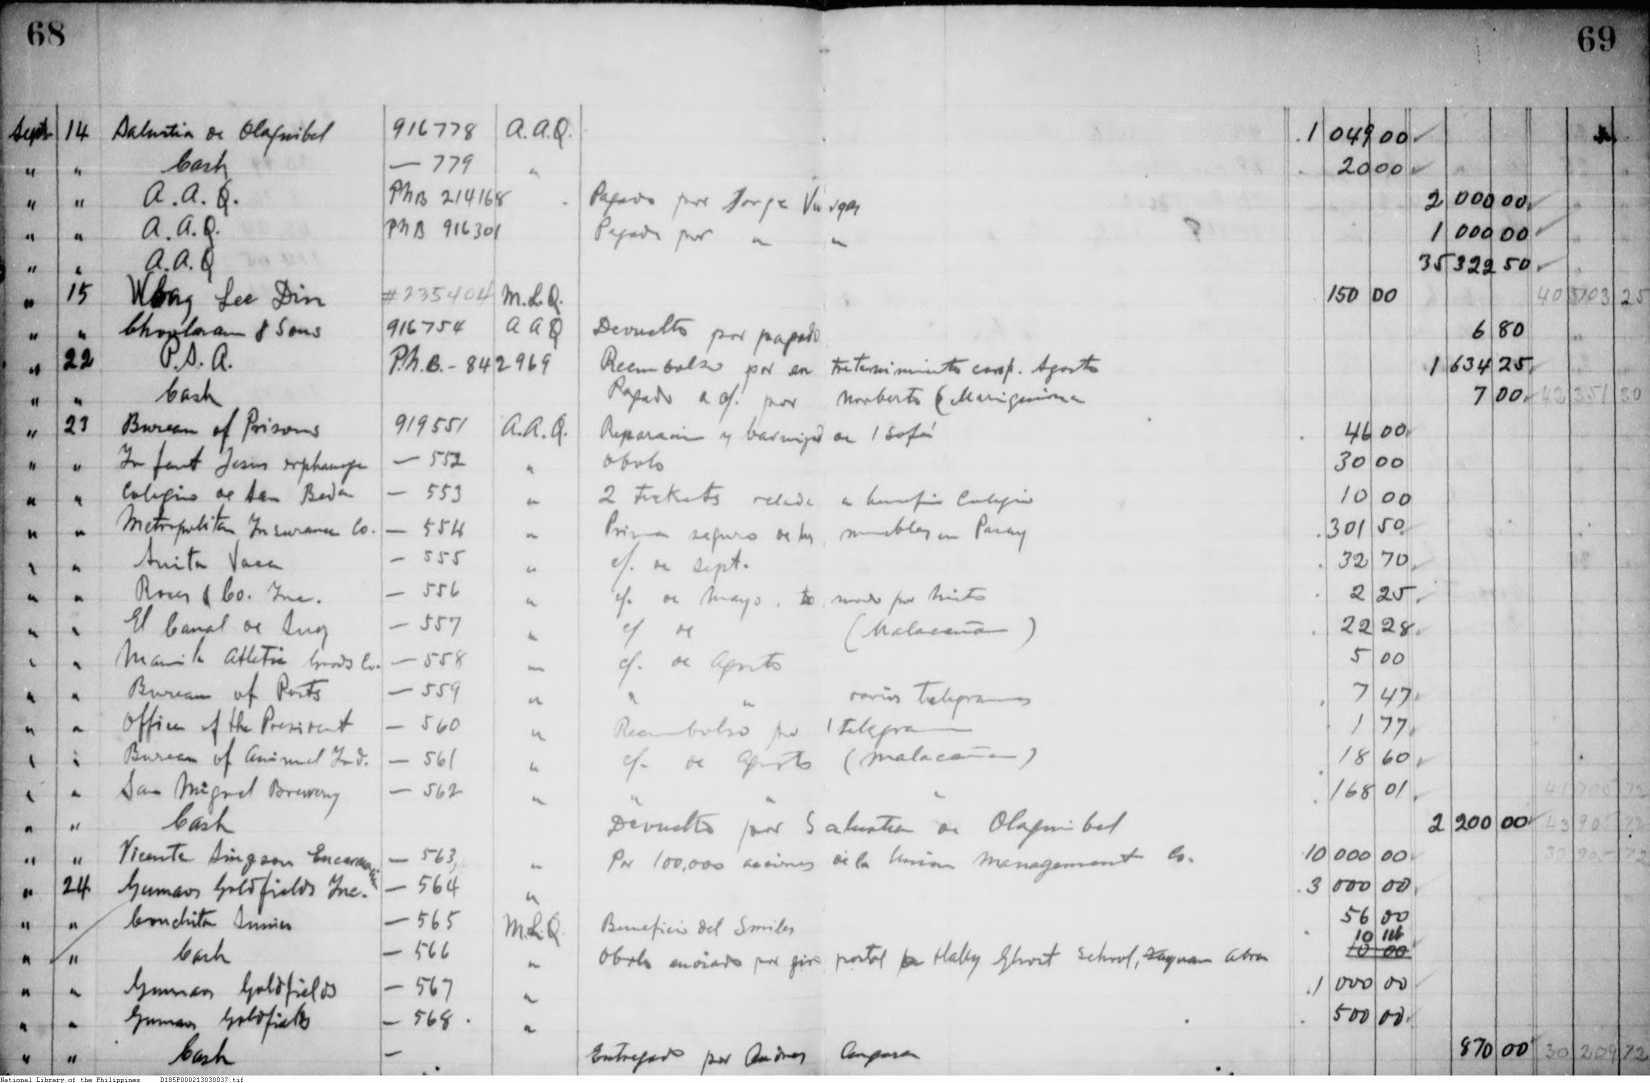 68 69
Sept 14 Salustia de Olaguibel 916778 A.A.Q. 1 049 00
" " Cash — 779 " 20 00
" " A.A.Q. PhB 214168 Pagado por Jorge Vargas 2 000 00
" " A.A.Q. PhB 916301 Pagado por " " 1 000 00
" " A.A.Q 35 322 50
" 15 Wong Lee Din #235404 M.L.Q. 150 00 40 503 25
" " & Sons 916754 A A Q Devuelto por pagado 6 80
" 22 P.S.A. Ph.B. - 842969 Reembolso por en comp. Agosto 1 634 25
" " Cash Pagado a c/. por Norberto 7 00 42 351 30
" 23 Bureau of Prisons 919551 A.A.Q. Reparacion y de 1 sofá 46 00
" " Infant Jesus orphanage — 552 " Obolo 30 00
" " Colegio de San Beda — 553 " 2 tickets a beneficio Colegio 10 00
" " Metropolitan Insurance Co. — 554 " Prima seguro de los muebles en Pasay 301 50
" " Anita — 555 " c/. de Sept. 32 70
" " Roces & Co. Inc. — 556 " c/. de Mayo. por 2 25
" " El Canal de Suez — 557 " c/ de (Malacañan) 22 28
" " Manila Athletic Goods Co. — 558 " c/. de Agosto 5 00
" " Bureau of Posts — 559 " " " varios telegramas 7 47
" " Office of the President — 560 " Reembolso por 1 telegrama 1 77
" " Bureau of Animal Ind. — 561 " c/. de Agosto (Malacañan) 18 60
" " San Miguel Brewery — 562 " " " " 168 01
" " Cash Devuelto por Salustia de Olaguibel 2 200 00 43 905 72
" " Vicente Singson Encarnacion — 563 " Por 100,000 acciones de la Union Management Co. 10 000 00 33 905 72
" 24 Gumaos Goldfields Inc. — 564 " 3 000 00
" " Conchita Sunico — 565 M.L.Q. Beneficio del Smiles 56 00
" " Cash — 566 " Obolo enviado por giro postal Holy Ghost School, Abra 10 16 10 00
" " Gumaos Goldfields — 567 " 1 000 00
" " Gumaos Goldfields — 568 " 500 00
" " Cash — Entregado por 870 00 30 209 72
National Library of the Philippines D185P000213030037.tif